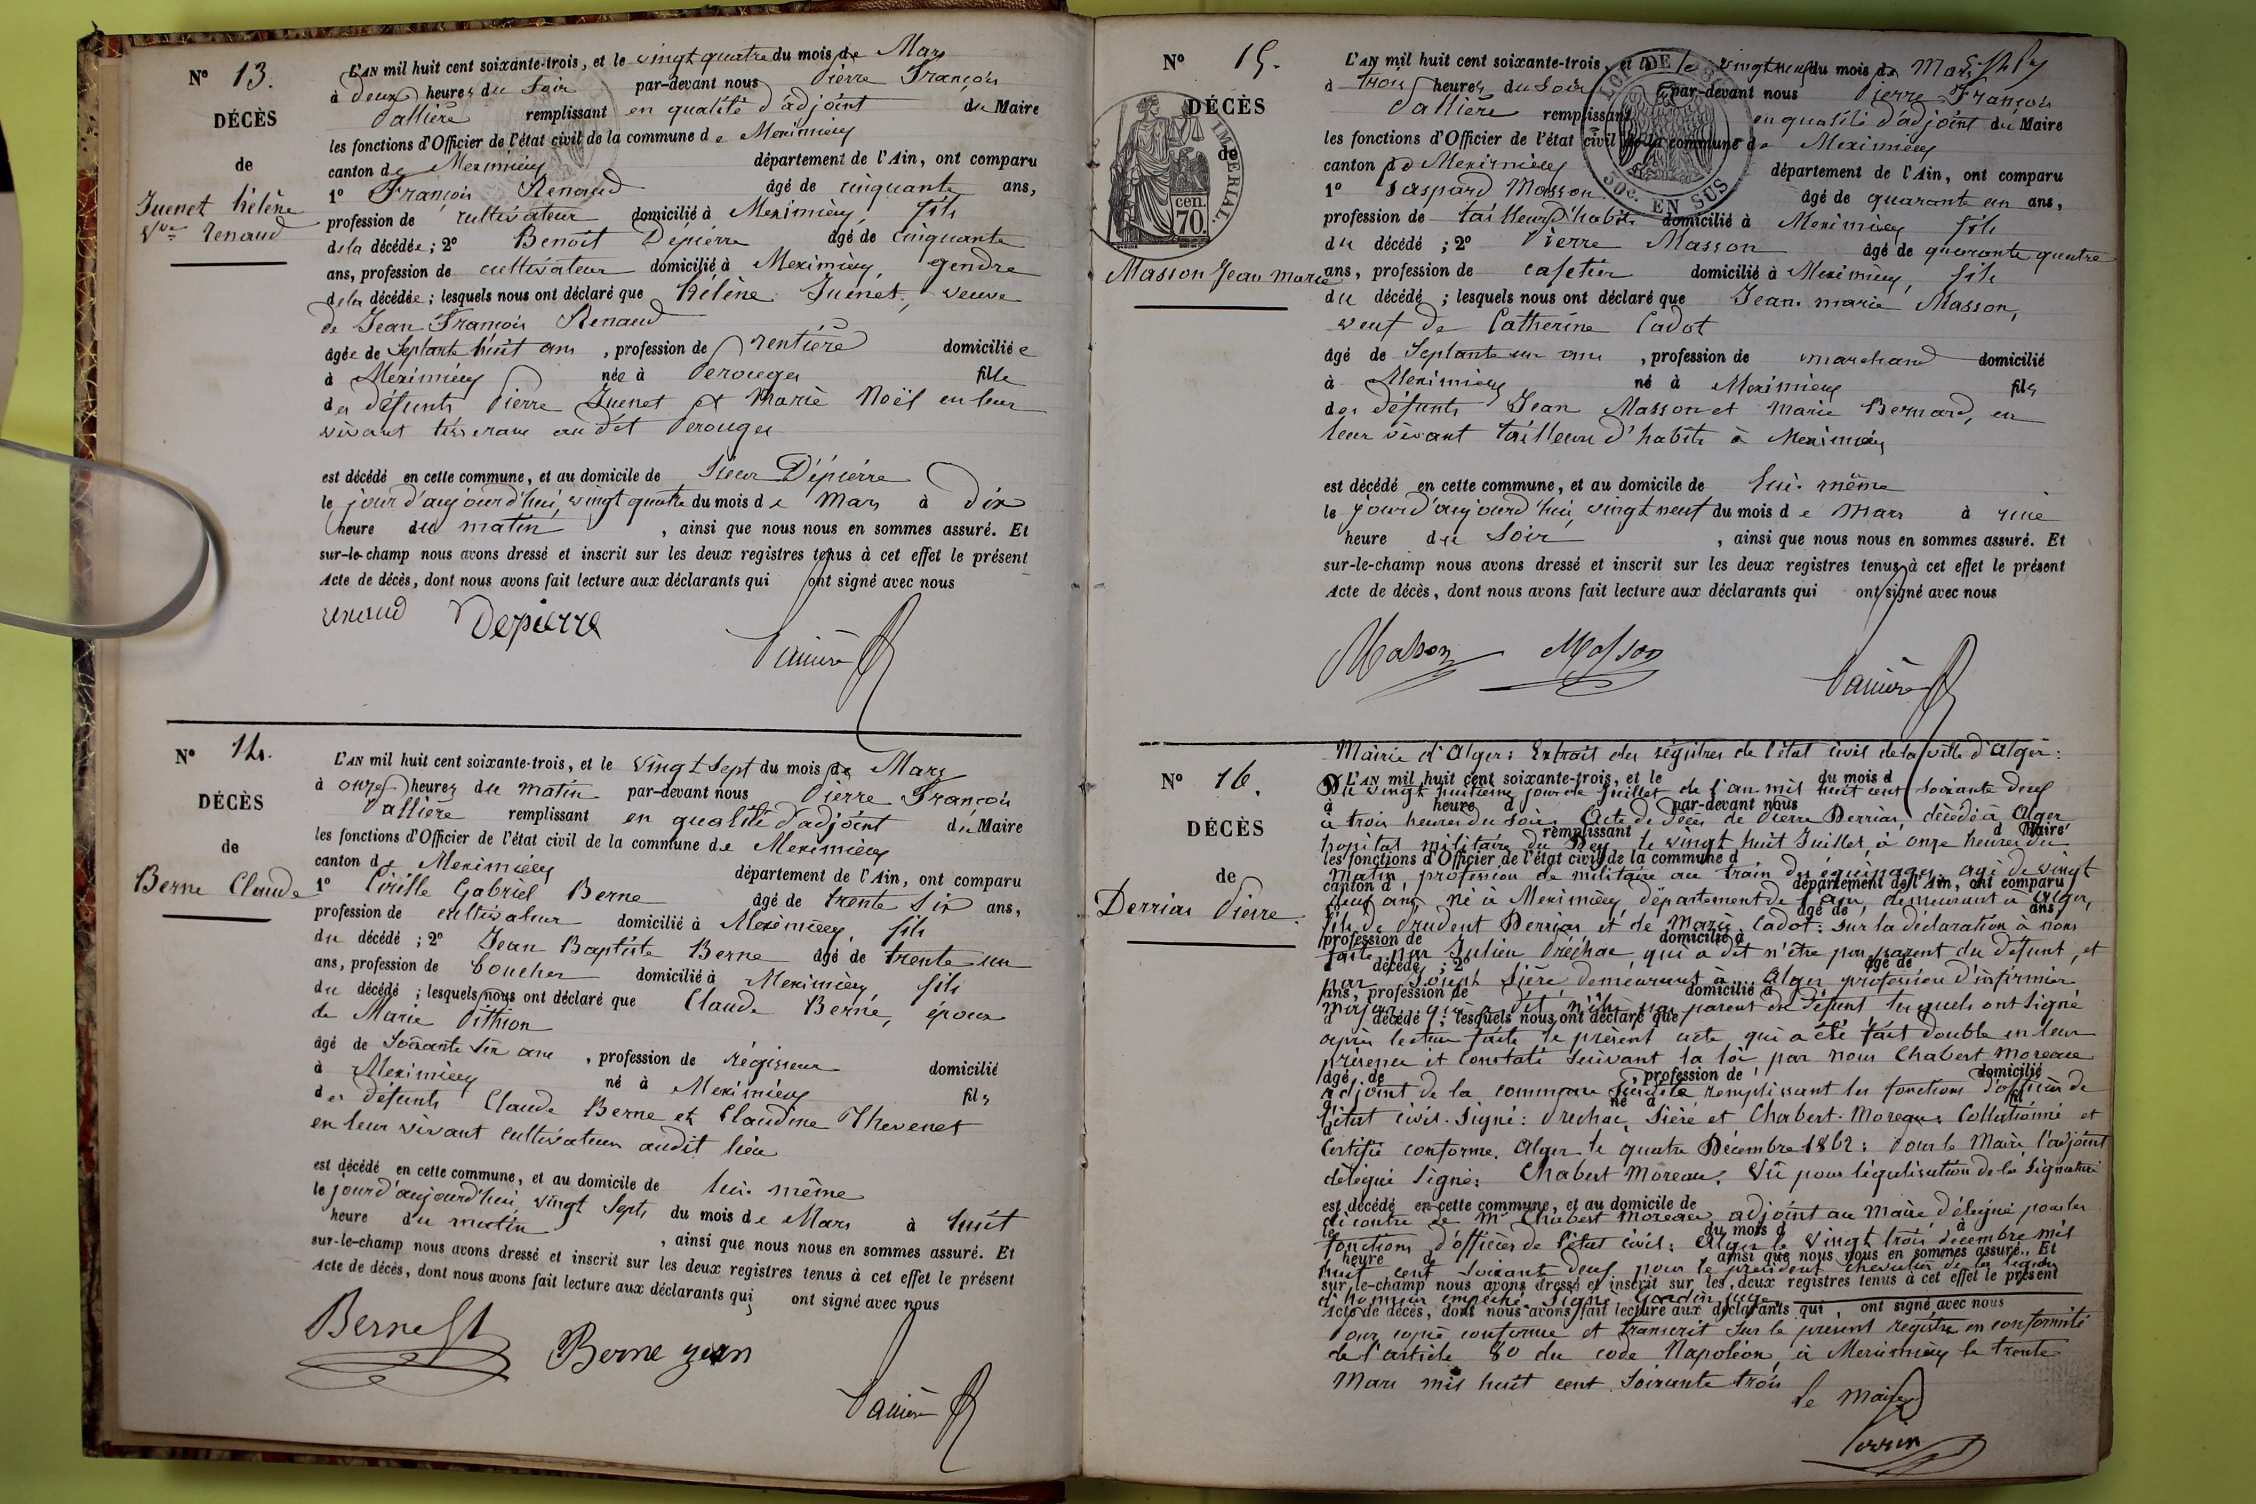 N° 13.
DÉCÈS
de
Juenet hélène
Vve renaud
L'AN mil huit cent soixante-trois, et le vingt quatre du mois de Mars
à deux heures du Soir par-devant nous Pierre François
Vallière remplissant en qualité d'adjoint du Maire
les fonctions d'Officier de l'état civil de la commune de Meximieux
canton de Meximieux département de l'Ain, ont comparu
1° François Renaud âgé de cinquante ans,
profession de cultivateur domicilié à Meximieux, fils
de la décédée; 2° Benoit Dépierre âgé de cinquante
ans, profession de cultivateur domicilié à Meximieux, gendre
de la décédée; lesquels nous ont déclaré que hélène Juenet, veuve
de Jean François Renaud
âgée de Septante huit ans, profession de rentière domiciliée
à Meximieux née à Perouges fille
des défunts Pierre Juenet et Marie Noël en leur
vivant tisserans au dit Perouges
est décédé en cette commune, et au domicile de Sieur Dépierre
le jour d'aujourd'hui, vingt quatre du mois de Mars à dix
heure du matin, ainsi que nous nous en sommes assuré. Et
sur-le-champ nous avons dressé et inscrit sur les deux registres tenus à cet effet le présent
Acte de décès, dont nous avons fait lecture aux déclarants qui ont signé avec nous
renaud Depierre Vallière
N° 14.
DÉCÈS
de
Berne Claude
L'AN mil huit cent soixante-trois, et le vingt Sept du mois de Mars
à onze heures du matin par-devant nous Pierre François
Vallière remplissant en qualité d'adjoint du Maire
les fonctions d'Officier de l'état civil de la commune de Meximieux
canton de Meximieux département de l'Ain, ont comparu
1° Cirille Gabriel Berne âgé de trente Six ans,
profession de cultivateur domicilié à Meximieux, fils
du décédé; 2° Jean Baptiste Berne âgé de trente un
ans, profession de boucher domicilié à Meximieux fils
du décédé; lesquels nous ont déclaré que Claude Berne, époux
de Marie Pithion
âgé de Soixante Six ans, profession de régisseur domicilié
à Meximieux né à Meximieux fils
des défunts Claude Berne et Claudine Thevenet
en leur vivant cultivateurs audit lieu
est décédé en cette commune, et au domicile de lui-même
le jour d'aujourd'hui, vingt Sept du mois de Mars à huit
heure du matin, ainsi que nous nous en sommes assuré. Et
sur-le-champ nous avons dressé et inscrit sur les deux registres tenus à cet effet le présent
Acte de décès, dont nous avons fait lecture aux déclarants qui ont signé avec nous
Berne Berne jean
Vallière
N° 15.
DÉCÈS
de
IMPERIAL.
cen.
70.
Masson Jean marie
L'AN mil huit cent soixante-trois, et le vingt neuf du mois de Mars
30c. EN SUS
à trois heures du Soir par-devant nous Pierre François
Vallière remplissant en qualité d'adjoint du Maire
les fonctions d'Officier de l'état civil de la commune de Meximieux
canton de Meximieux département de l'Ain, ont comparu
1° Gaspard Masson âgé de quarante un ans,
profession de tailleur d'habits domicilié à Meximieux fils
du décédé; 2° Pierre Masson âgé de quarante quatre
ans, profession de cafetier domicilié à Meximieux, fils
du décédé; lesquels nous ont déclaré que Jean marie Masson,
veuf de Catherine Cadot
âgé de Septante un ans, profession de marchand domicilié
à Meximieux né à Meximieux fils
des défunts Jean Masson et Marie Bernard, en
leur vivant tailleurs d'habits à Meximieux
est décédé en cette commune, et au domicile de lui-même
le jour d'aujourd'hui, vingt neuf du mois de Mars à une
heure du Soir, ainsi que nous nous en sommes assuré. Et
sur-le-champ nous avons dressé et inscrit sur les deux registres tenus à cet effet le présent
Acte de décès, dont nous avons fait lecture aux déclarants qui ont signé avec nous
Masson Masson Vallière
N° 16.
DÉCÈS
de
Derrias Pierre
Mairie d'Alger: Extrait des régistres de l'état civil de la ville d'Alger:
L'AN mil huit cent soixante-trois, et le du mois d
Du vingt huitième jour de Juillet de l'an mil huit cent soixante deux
à heure d par-devant nous
à trois heures du soir. Acte de décès de Pierre Derrias, décédé à Alger
remplissant d Maire
hopital militaire du Dey, le vingt huit Juillet, à onze heures du
les fonctions d'Officier de l'état civil de la commune d
matin, profession de militaire au train des équipages, agé de vingt
canton d département de l'Ain, ont comparu
neuf ans, né à Meximieux, département de l'ain, demeurant à Alger,
âgé de ans,
fils de Prudent Derrias et de Marie Cadot: Sur la déclaration à nous
profession de domicilié à
faite par Julien Préchac qui a dit n'être pas parent du défunt, et
décédé; 2° âgé de
par Joseph Sière demeurant à Alger profession d'infirmier
ans, profession de domicilié à
major qui a dit n'être pas parent du défunt, lesquels ont Signé
d décédé; lesquels nous ont déclaré que
après lecture faite le présent acte, qui a été fait double en leur
présence et constaté suivant la loi par nous Chabert Moreau
âgé de, profession de domicilié
adjoint de la commune remplissant les fonctions d'officier de
à né à fil
l'état civil. Signé: Prechac, Sière et Chabert-Moreau: Collationné et
Certifié conforme. Alger le quatre Décembre 1862: Pour le Maire, l'adjoint
délégué Signé: Chabert Moreau. Vû pour légalisation de la Signature
est décédé en cette commune, et au domicile de
ci contre de Mr Chabert Moreau adjoint au Maire délégué pour les
le du mois d à
fonctions d'officier de l'état civil: Alger le vingt trois décembre mil
heure d ainsi que nous nous en sommes assuré. Et
huit cent soixante deux pour le président chevalier de la légion
sur-le-champ nous avons dressé et inscrit sur les deux registres tenus à cet effet le présent
d'honneur empêché Signé juge
Acte de décès, dont nous avons fait lecture aux déclarants qui, ont signé avec nous
Pour copie conforme et transcrit sur le présent registre en conformité
de l'article 80 du code Napoléon, à Meximieux le trente
Mars mil huit cent soixante trois
le Maire